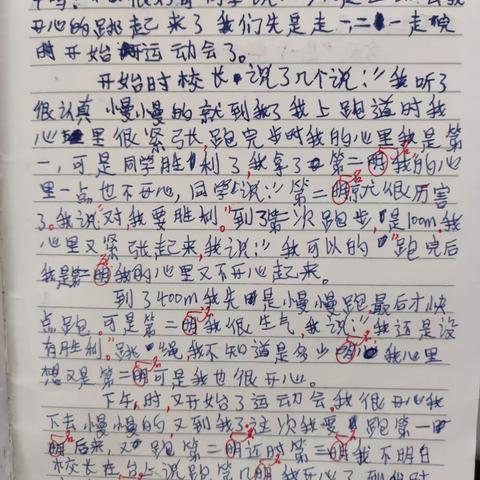 开心的跳起来了我们先是走一二一走完
时开始运动会了。
开始时校长说了几个说:"我听了
很认真慢慢的就到我了我上跑道时我
心里很紧张,跑完步时我的心里我是第
一,可是同学胜利了,我拿了第二明我的心
里一点也不开心,同学说:"第二明就很厉害
了。我说"对,我要胜利。"到了第二次跑步,是100m,我
心里又紧张起来,我说:"我可以的"跑完后
我是第二明我的心里又不开心起来。
到了400m我先是慢慢跑,最后才快
点跑。可是第二明我很生气,我说:"我还是没
有胜利。跳绳,我不知道是多少明,我心里
想又是第二明可是我也很开心。
下午,时,又开始了运动会,我很开心我
下去慢慢的,又到我了,这次我要跑第一
明后来,又跑第二明近时第三明我不明白
校长在台上说跑第几明我开心了到我时